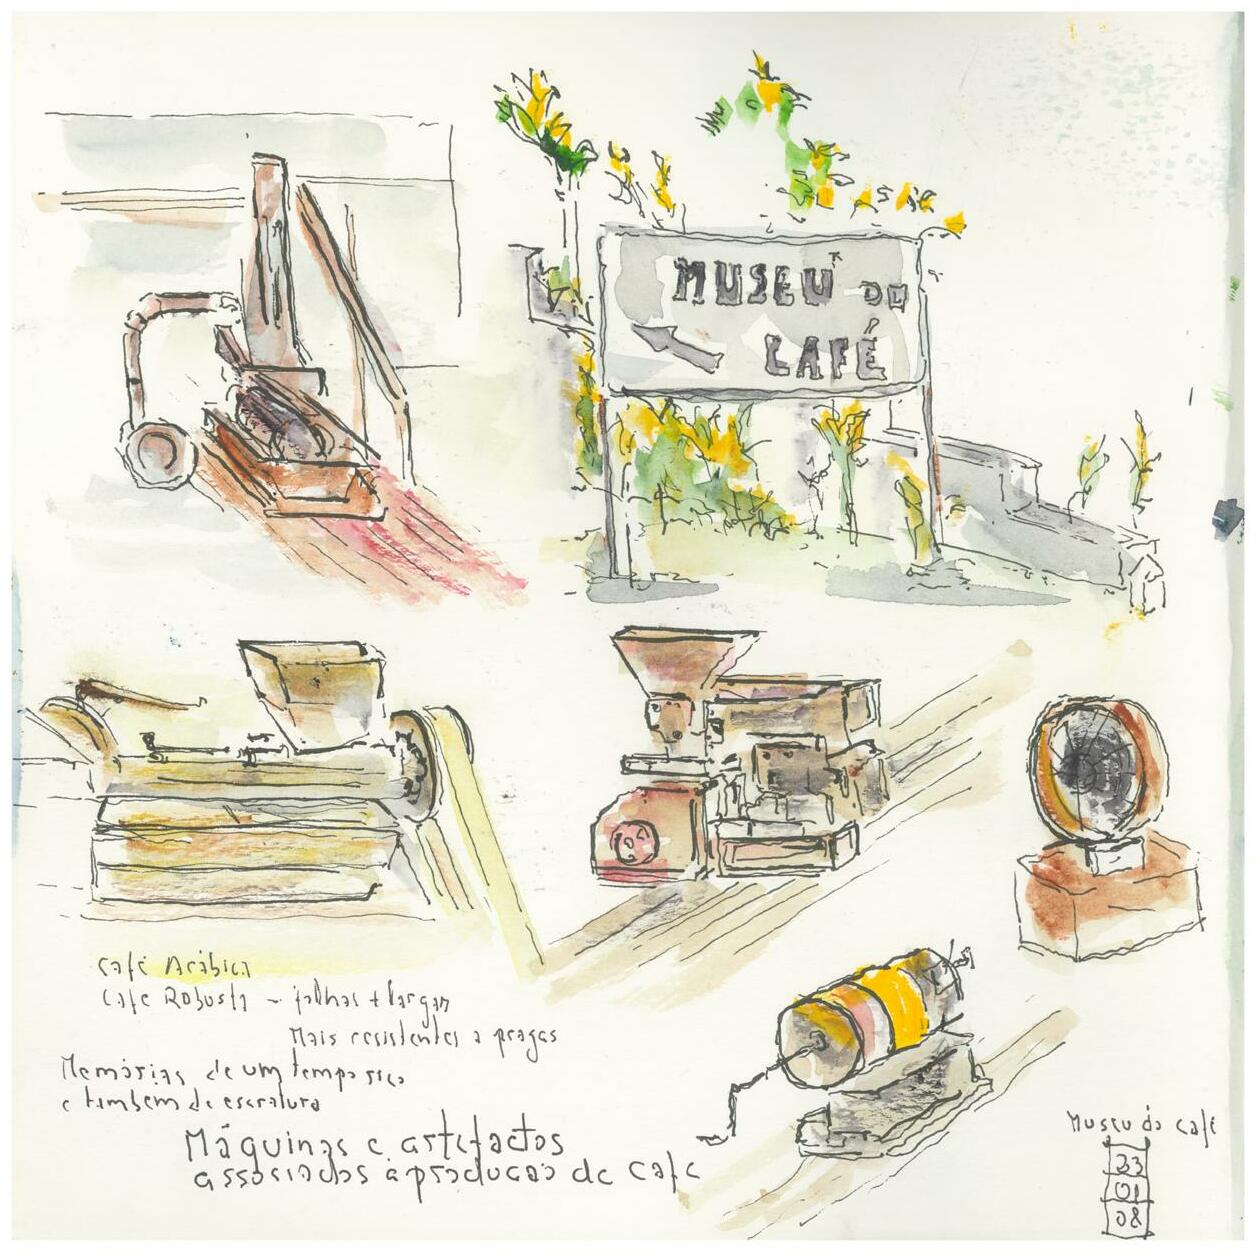 MUSEU DO
CAFÉ
Café Arábica
Cafe Robusta - folhas + largas
Mais resistentes a pragas
Memórias de um tempo rico
e tambem de escratura
Máquinas e artefactos
associados à produçao de cafe
Museu do café
23
01
08